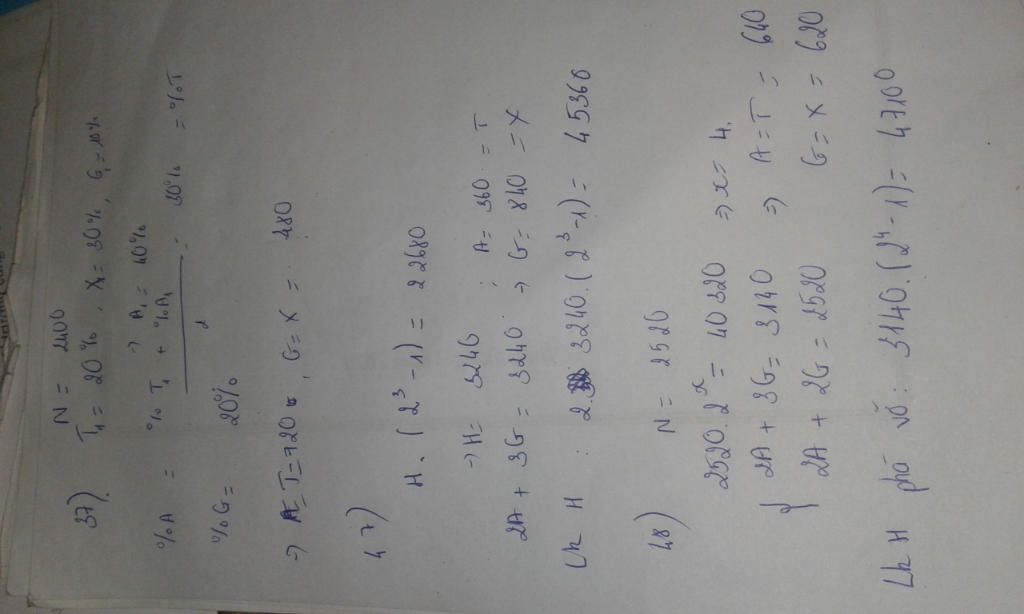 37) N = 2400
T₁ = 20%, X₁ = 30%, G₁ = 10%
→ A₁ = 40%
%A = %T₁ + %A₁ / 2 = 30% = %T
%G = 20%
→ A = T = 720, G = X = 480
47)
H.(2³ - 1) = 22680
→ H = 3240
2A + 3G = 3240 ; A = 360 = T
→ G = 840 = X
Lk H : 2.3240.(2³ - 1) = 45360
48) N = 2520
2520.2ˣ = 40320 ⇒ x = 4.
{ 2A + 3G = 3140 ⇒ A = T = 640
2A + 2G = 2520 G = X = 620
Lk H phá vỡ : 3140.(2⁴ - 1) = 47100